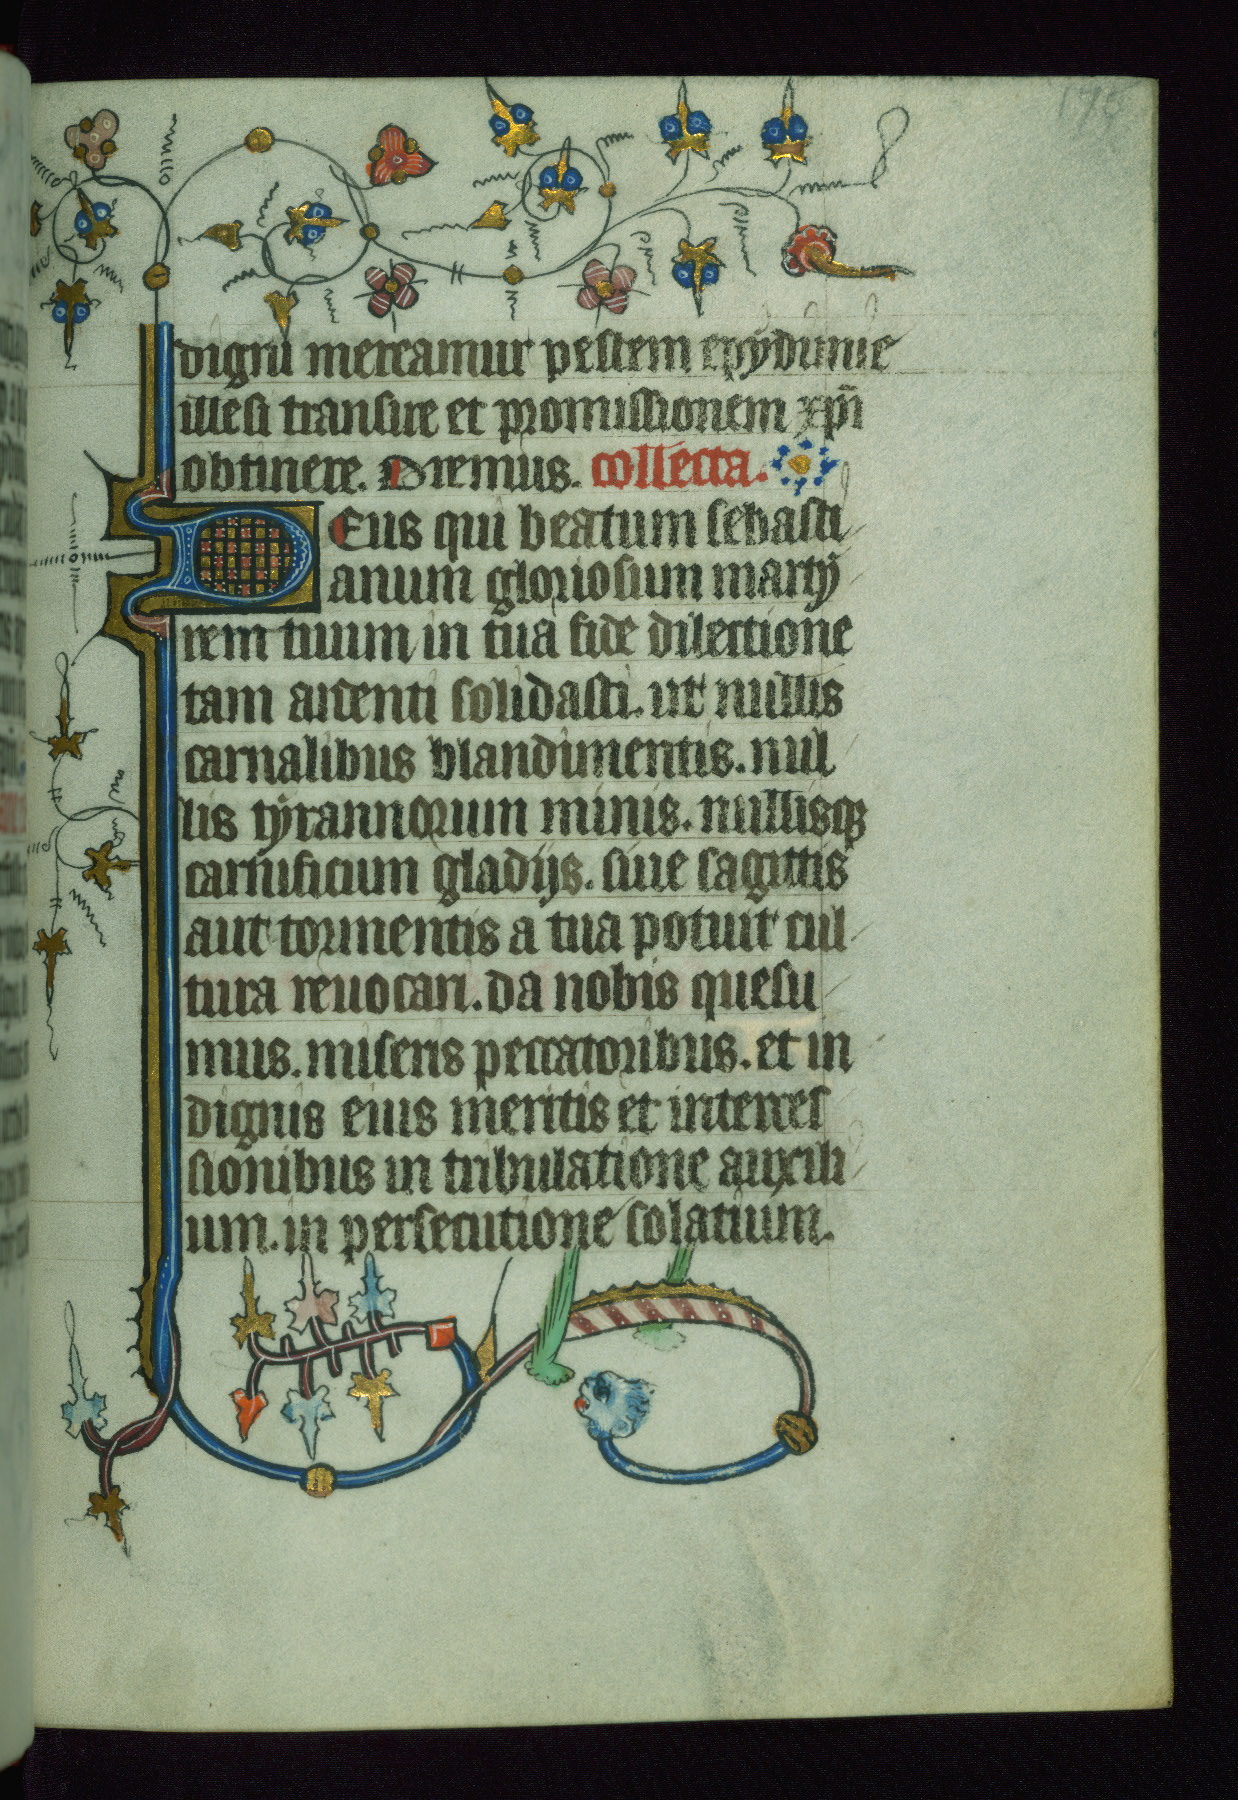 175
digni mereamur pestem epydimie
illesi transire et promissionem xpi
obtinere. Oremus. collecta.
DEus qui beatum sebasti
anum gloriosum marty
rem tuum in tua fide dilectione
tam ardenti solidasti. ut nullis
carnalibus blandimentis. nul
lis tyrannorum minis. nullisq
carnificum gladijs. siue sagittis
aut tormentis a tua potuit cul
tura reuocari. da nobis quesu
mus. miseris peccatoribus. et in
dignis eius meritis et interces
sionibus in tribulatione auxili
um. in persecutione solatium.